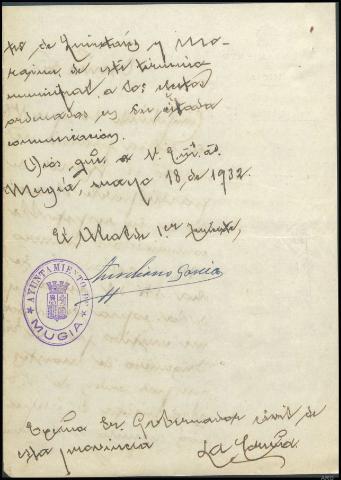 tes de Quintáns y Mo-
raime de este término
municipal a los efectos
ordenados en su citada
comunicación.
Dios gue. a V. E. ms. as.
Mugía, mayo 18 de 1932.
El Alcalde 1.er Teniente,
García
AYUNTAMIENTO DE
MUGIA
Excmo Sr. Gobernador civil de
esta provincia
La Coruña